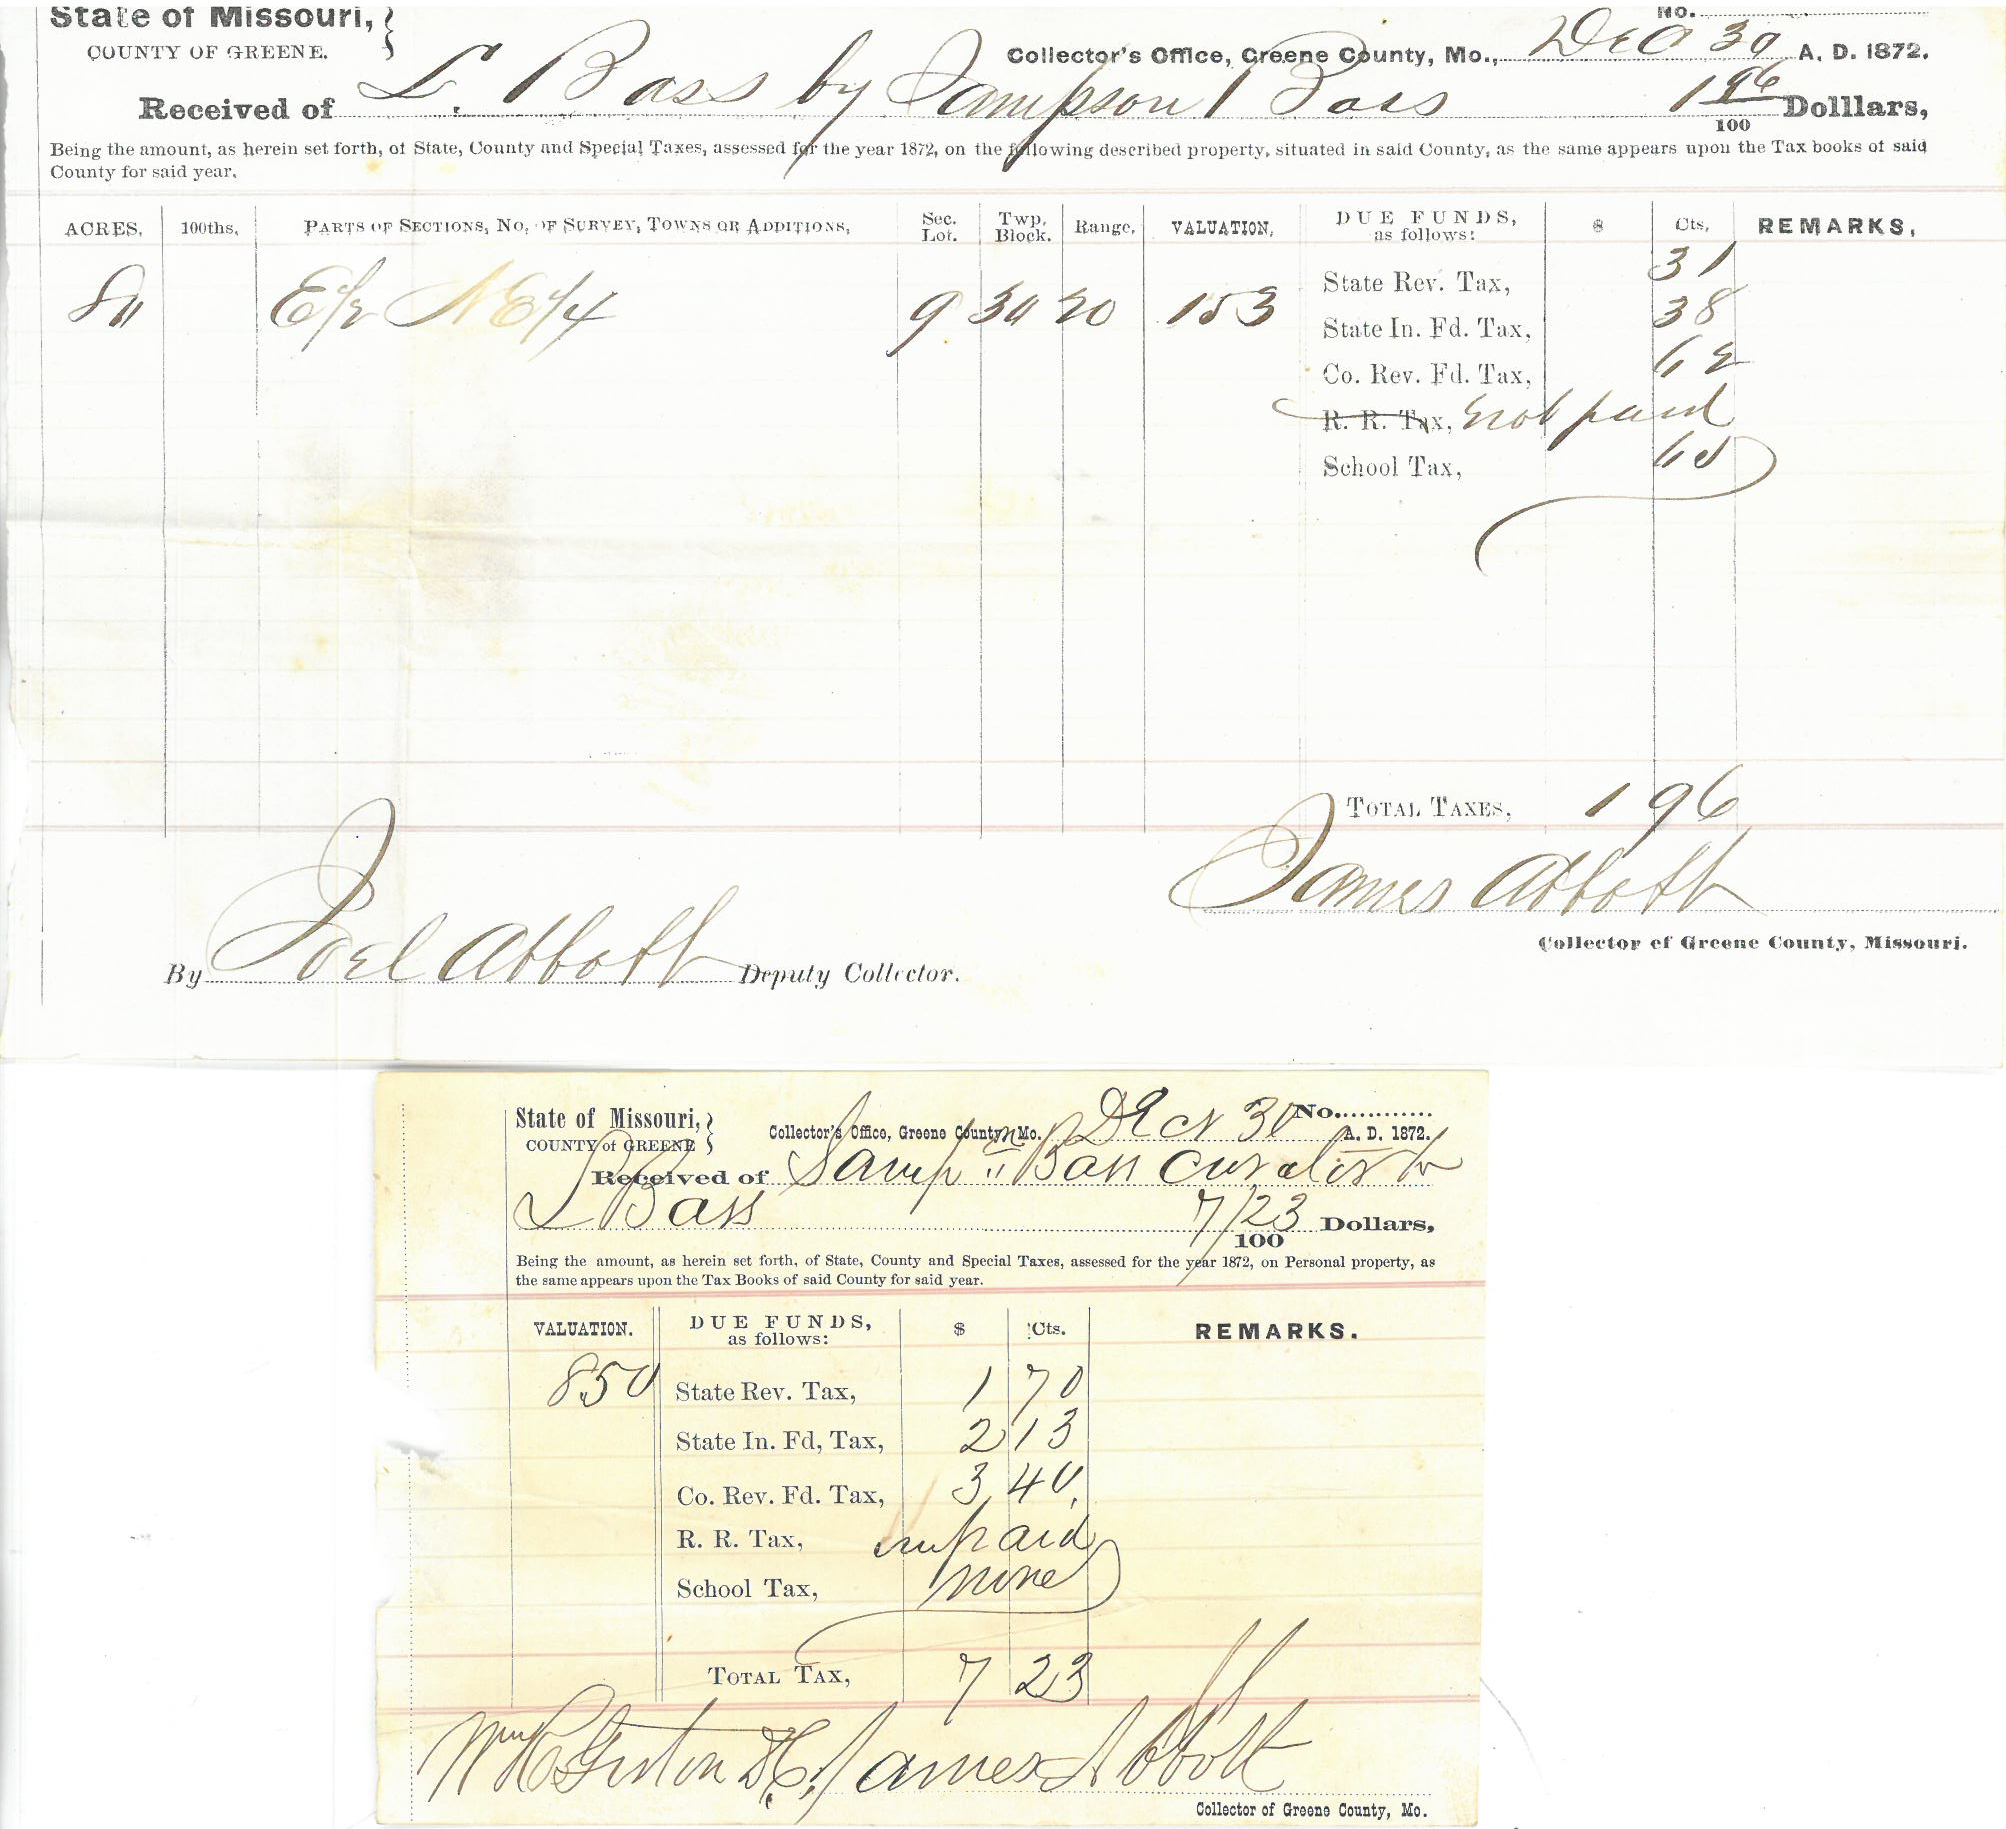 State of Missouri,
COUNTY OF GREENE.
No.
Collector's Office, Greene County, Mo., Dec 30 A. D. 1872.
Received of L. Bass by Sampson Bass 1 96/100 Dolllars,
Being the amount, as herein set forth, of State, County and Special Taxes, assessed for the year 1872, on the following described property, situated in said County, as the same appears upon the Tax books of said
County for said year.
ACRES, 100ths, PARTS OF SECTIONS, NO, OF SURVEY, TOWNS OR ADDITIONS, Sec. Lot. Twp. Block. Range, VALUATION, DUE FUNDS, as follows: $ Cts, REMARKS,
80 E/2 NE/4 9 30 20 153 State Rev. Tax, 31
State In. Fd. Tax, 38
Co. Rev. Fd. Tax, 62
R. R. Tax, not paid
School Tax, 65
TOTAL TAXES, 1 96
James Abbott
Collector of Greene County, Missouri.
By Joel Abbott Deputy Collector.
State of Missouri,
COUNTY of GREENE
No.
Collector's Office, Greene County, Mo. Dec 30 A. D. 1872.
Received of Samp"n Bass Curator for
L Bass 7/23 100 Dollars,
Being the amount, as herein set forth, of State, County and Special Taxes, assessed for the year 1872, on Personal property, as
the same appears upon the Tax Books of said County for said year.
VALUATION. DUE FUNDS, as follows: $ Cts. REMARKS.
850 State Rev. Tax, 1 70
State In. Fd, Tax, 2 13
Co. Rev. Fd. Tax, 3 40
R. R. Tax, unpaid
School Tax, none
TOTAL TAX, 7 23
D.C. James Abbott
Collector of Greene County, Mo.